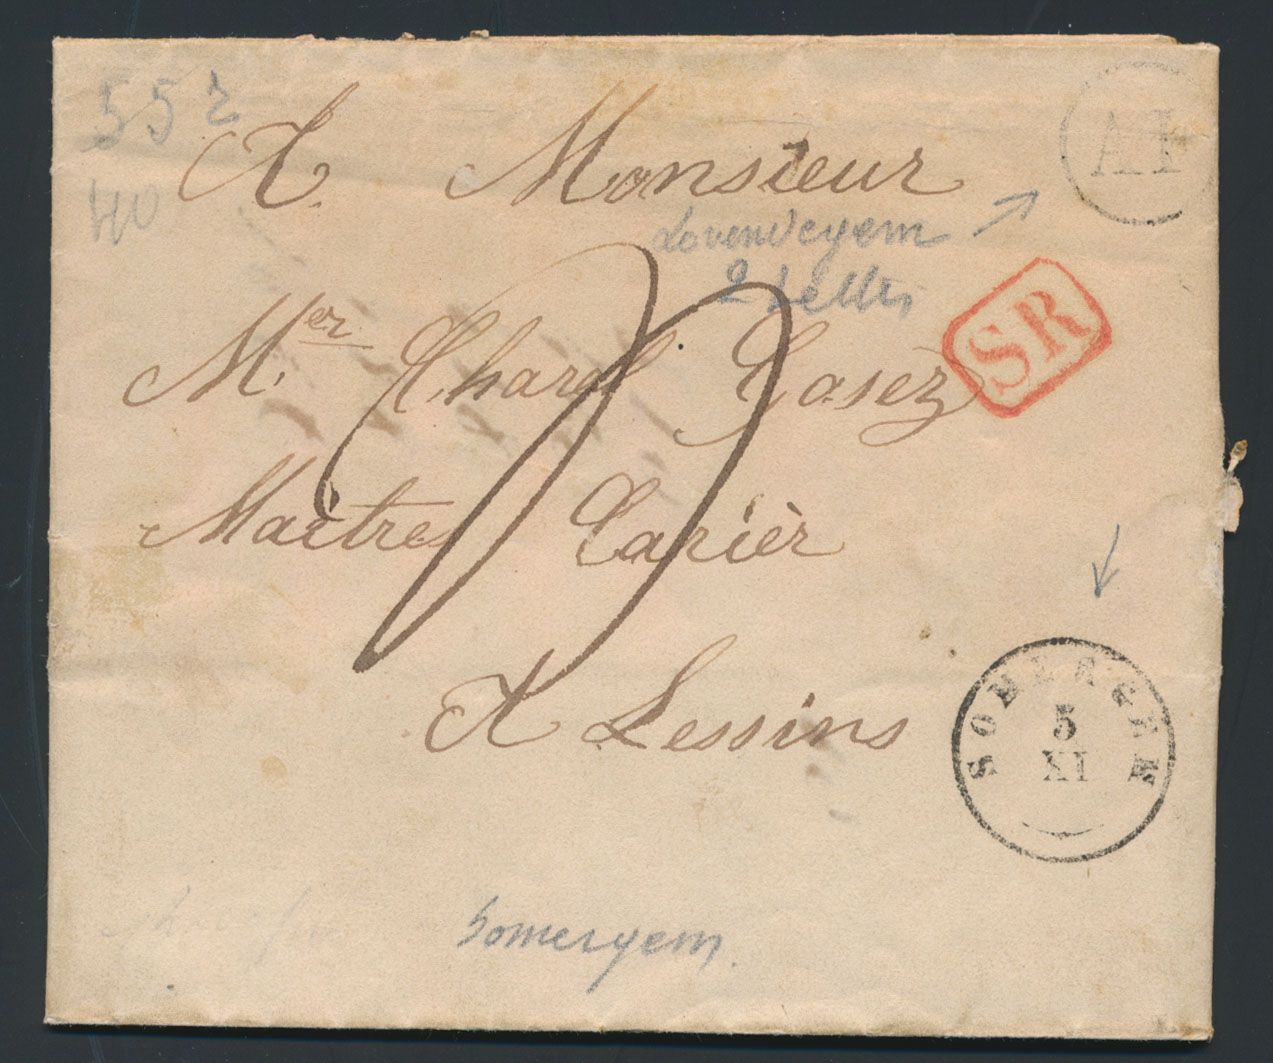 55 2
A Monsieur
AI
40
Lovendeyem
2 Lettr
SR
Mer Charl Casez
Maîtres Carièr
A Lessins
SOMERGEM
5
XI
Somergem.